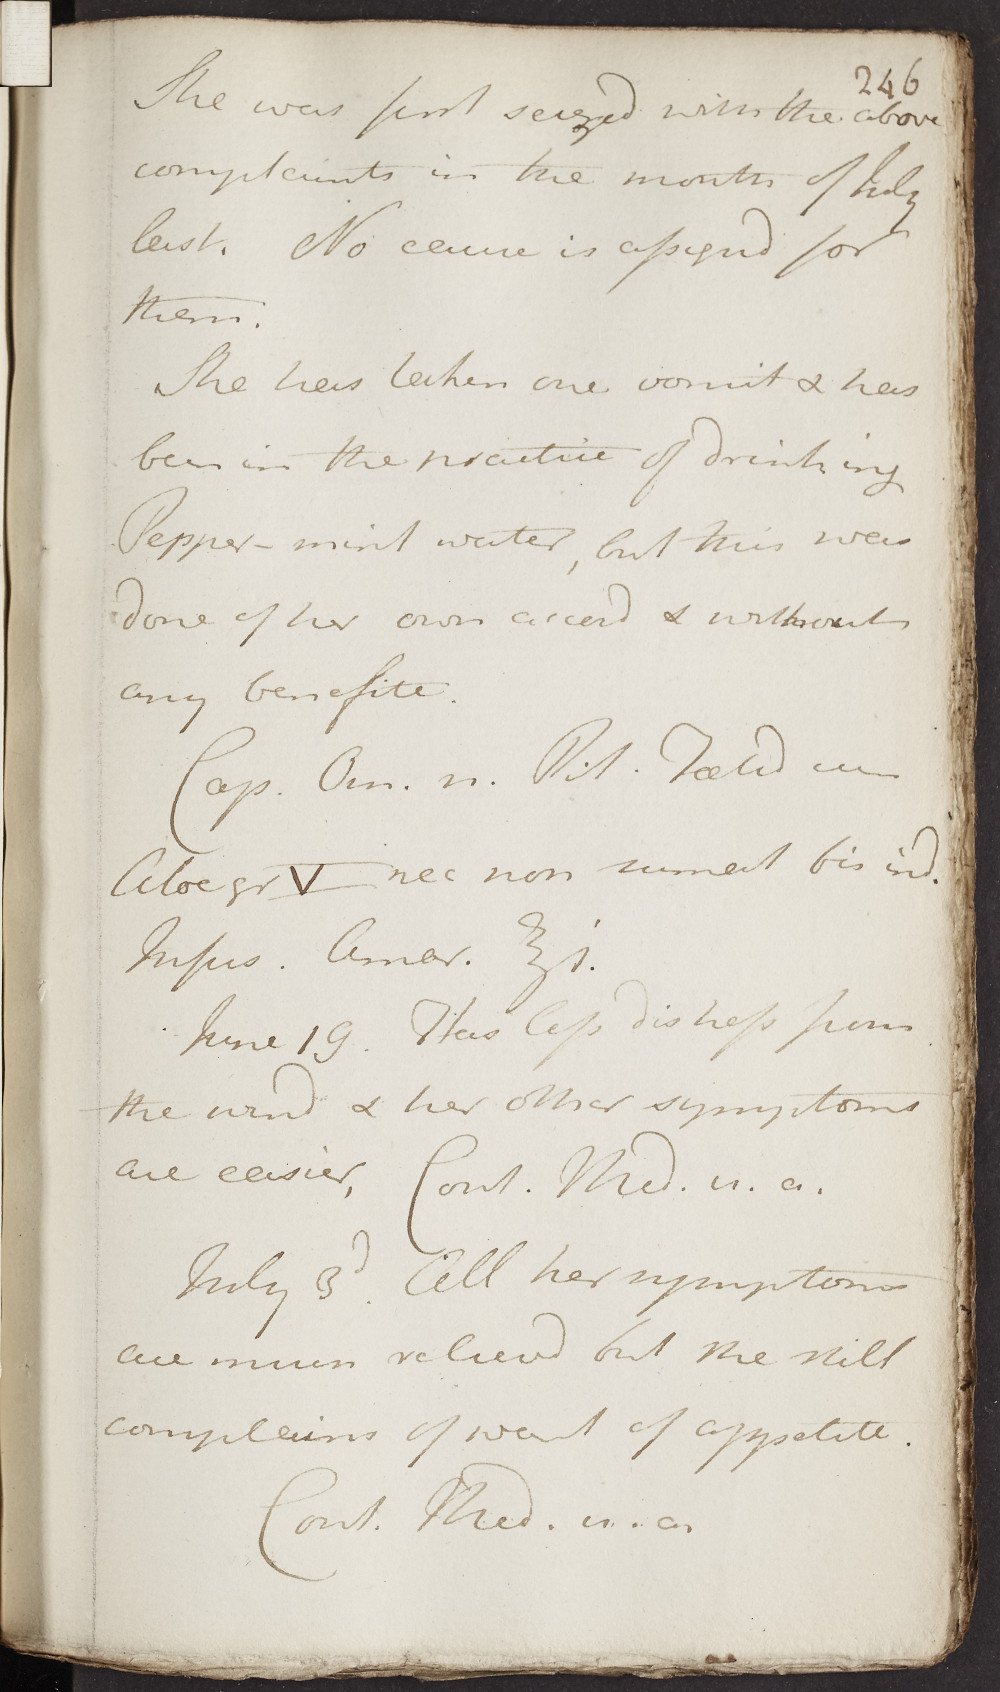 246
She was first seized with the above
complaints in the month of July
last. No cause is assignd for
them.
She has taken one vomit & has
been in the practice of drinking
Pepper-mint water, but this was
done of her own accord & without
any benefite.
Cap. Om. n. Pil. Fœtid cum
Aloe gr V nec non sumat bis ind.
Infus. Amar. ℥j.
June 19. Has less distress from
the wind & her other symptoms
are easier, Cont. Med. u. a.
July 3d. All her symptoms
are much relievd but she still
complains of want of appetite.
Cont. Med. u. a.